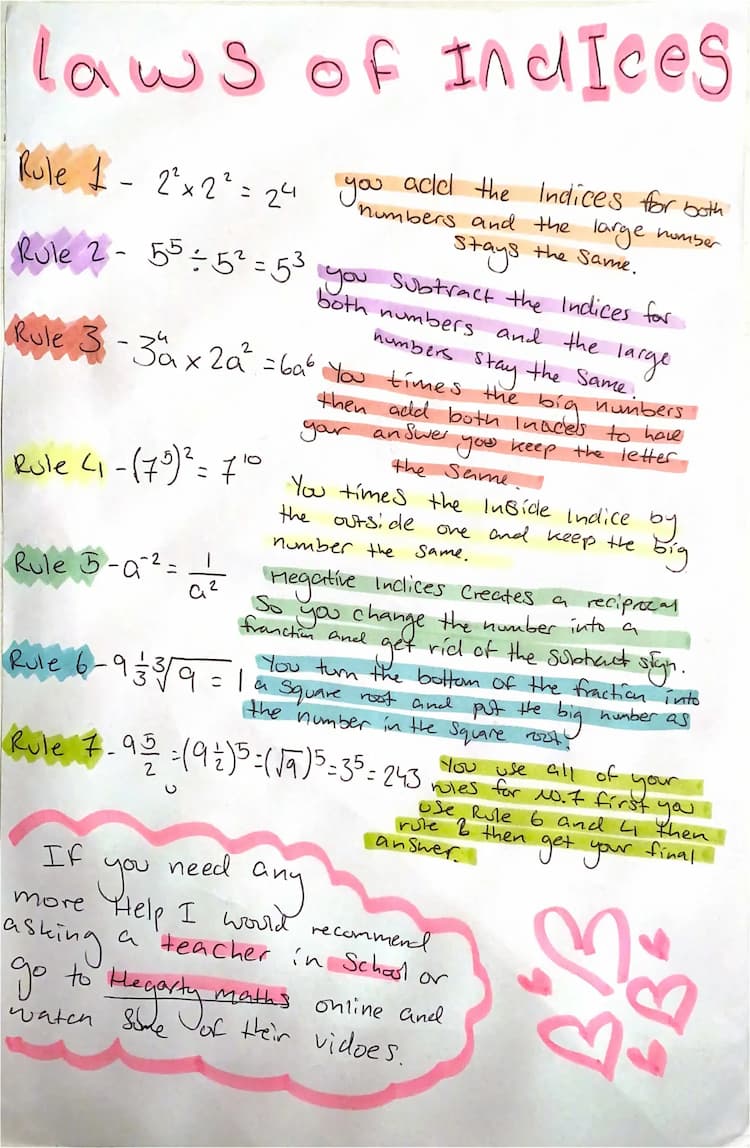 Laws of Indices
Rule 1 - 2² × 2² = 2⁴
you add the Indices for both
numbers and the large number
stays the same.
Rule 2 - 5⁵ ÷ 5² = 5³
you subtract the Indices for
both numbers and the large
numbers stay the same.
Rule 3 - 3a⁴ × 2a² = 6a⁶
You times the big numbers
then add both Indeces to have
your answer you keep the letter
the same.
Rule 4 - (7⁵)² = 7¹⁰
You times the Inside Indice by
the outside one and keep the big
number the same.
Rule 5 - a⁻² = 1/a²
Negative Indices creates a reciprocal
So you change the number into a
franction and get rid of the subtract sign.
Rule 6 - 9 1/3 ∛9 = 1
You turn the bottom of the fraction into
a square root and put the big number as
the number in the square root.
Rule 7 - 9 5/2 = (9 1/2)⁵ = (√9)⁵ = 3⁵ = 243
You use all of your
rules for no.7 first you
use Rule 6 and 4 then
rule 2 then get your final
answer.
If you need any
more Help I would recommend
asking a teacher in School or
go to Hegarty maths online and
watch some of their vidoes.